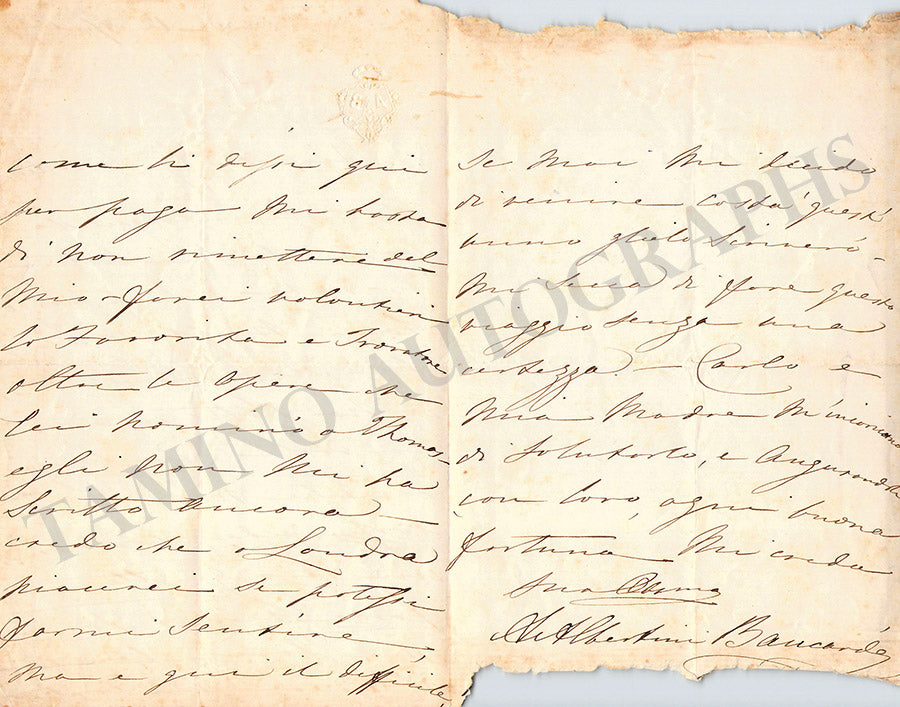 come li dissi qui
per paga mi basta
di non rimettere del
mio – farei volontieri
la Favorita e Trovatore
oltre le opere che
lei nominò a Thomas –
egli non mi ha
scritto ancora –
credo che a Londra
piacerei se potessi
farmi sentire
ma è qui il difficile,
Se mai mi decido
di venire costà quest'
anno glielo scriverò –
mi secca di fare questo
viaggio senza una
certezza. – Carlo e
mia Madre m'incaricano
di salutarlo, e augurandole
con loro, ogni buona
fortuna mi creda
sua
A. Albertini Baucardé
TAMINO AUTOGRAPHS